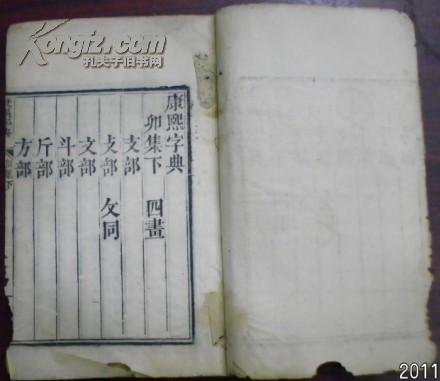 康熙字典
卯集下　四畫
支部
攴部　攵同
文部
斗部
斤部
方部
Kongfz.com
孔夫子旧书网
2011